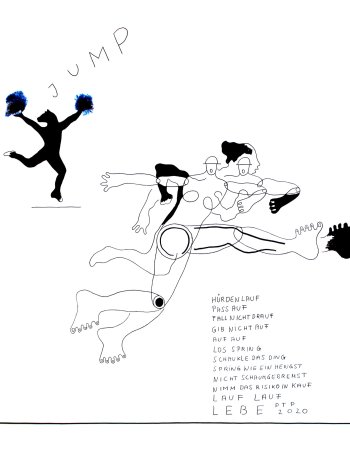 JUMP
HÜRDENLAUF
PASS AUF
FALL NICHT DRAUF
GIB NICHT AUF
AUF AUF
LOS SPRING
SCHAUKLE DAS DING
SPRING WIE EIN HENGST
NIMM DAS RISIKO IN KAUF
LAUF LAUF
LEBE PTP 2020